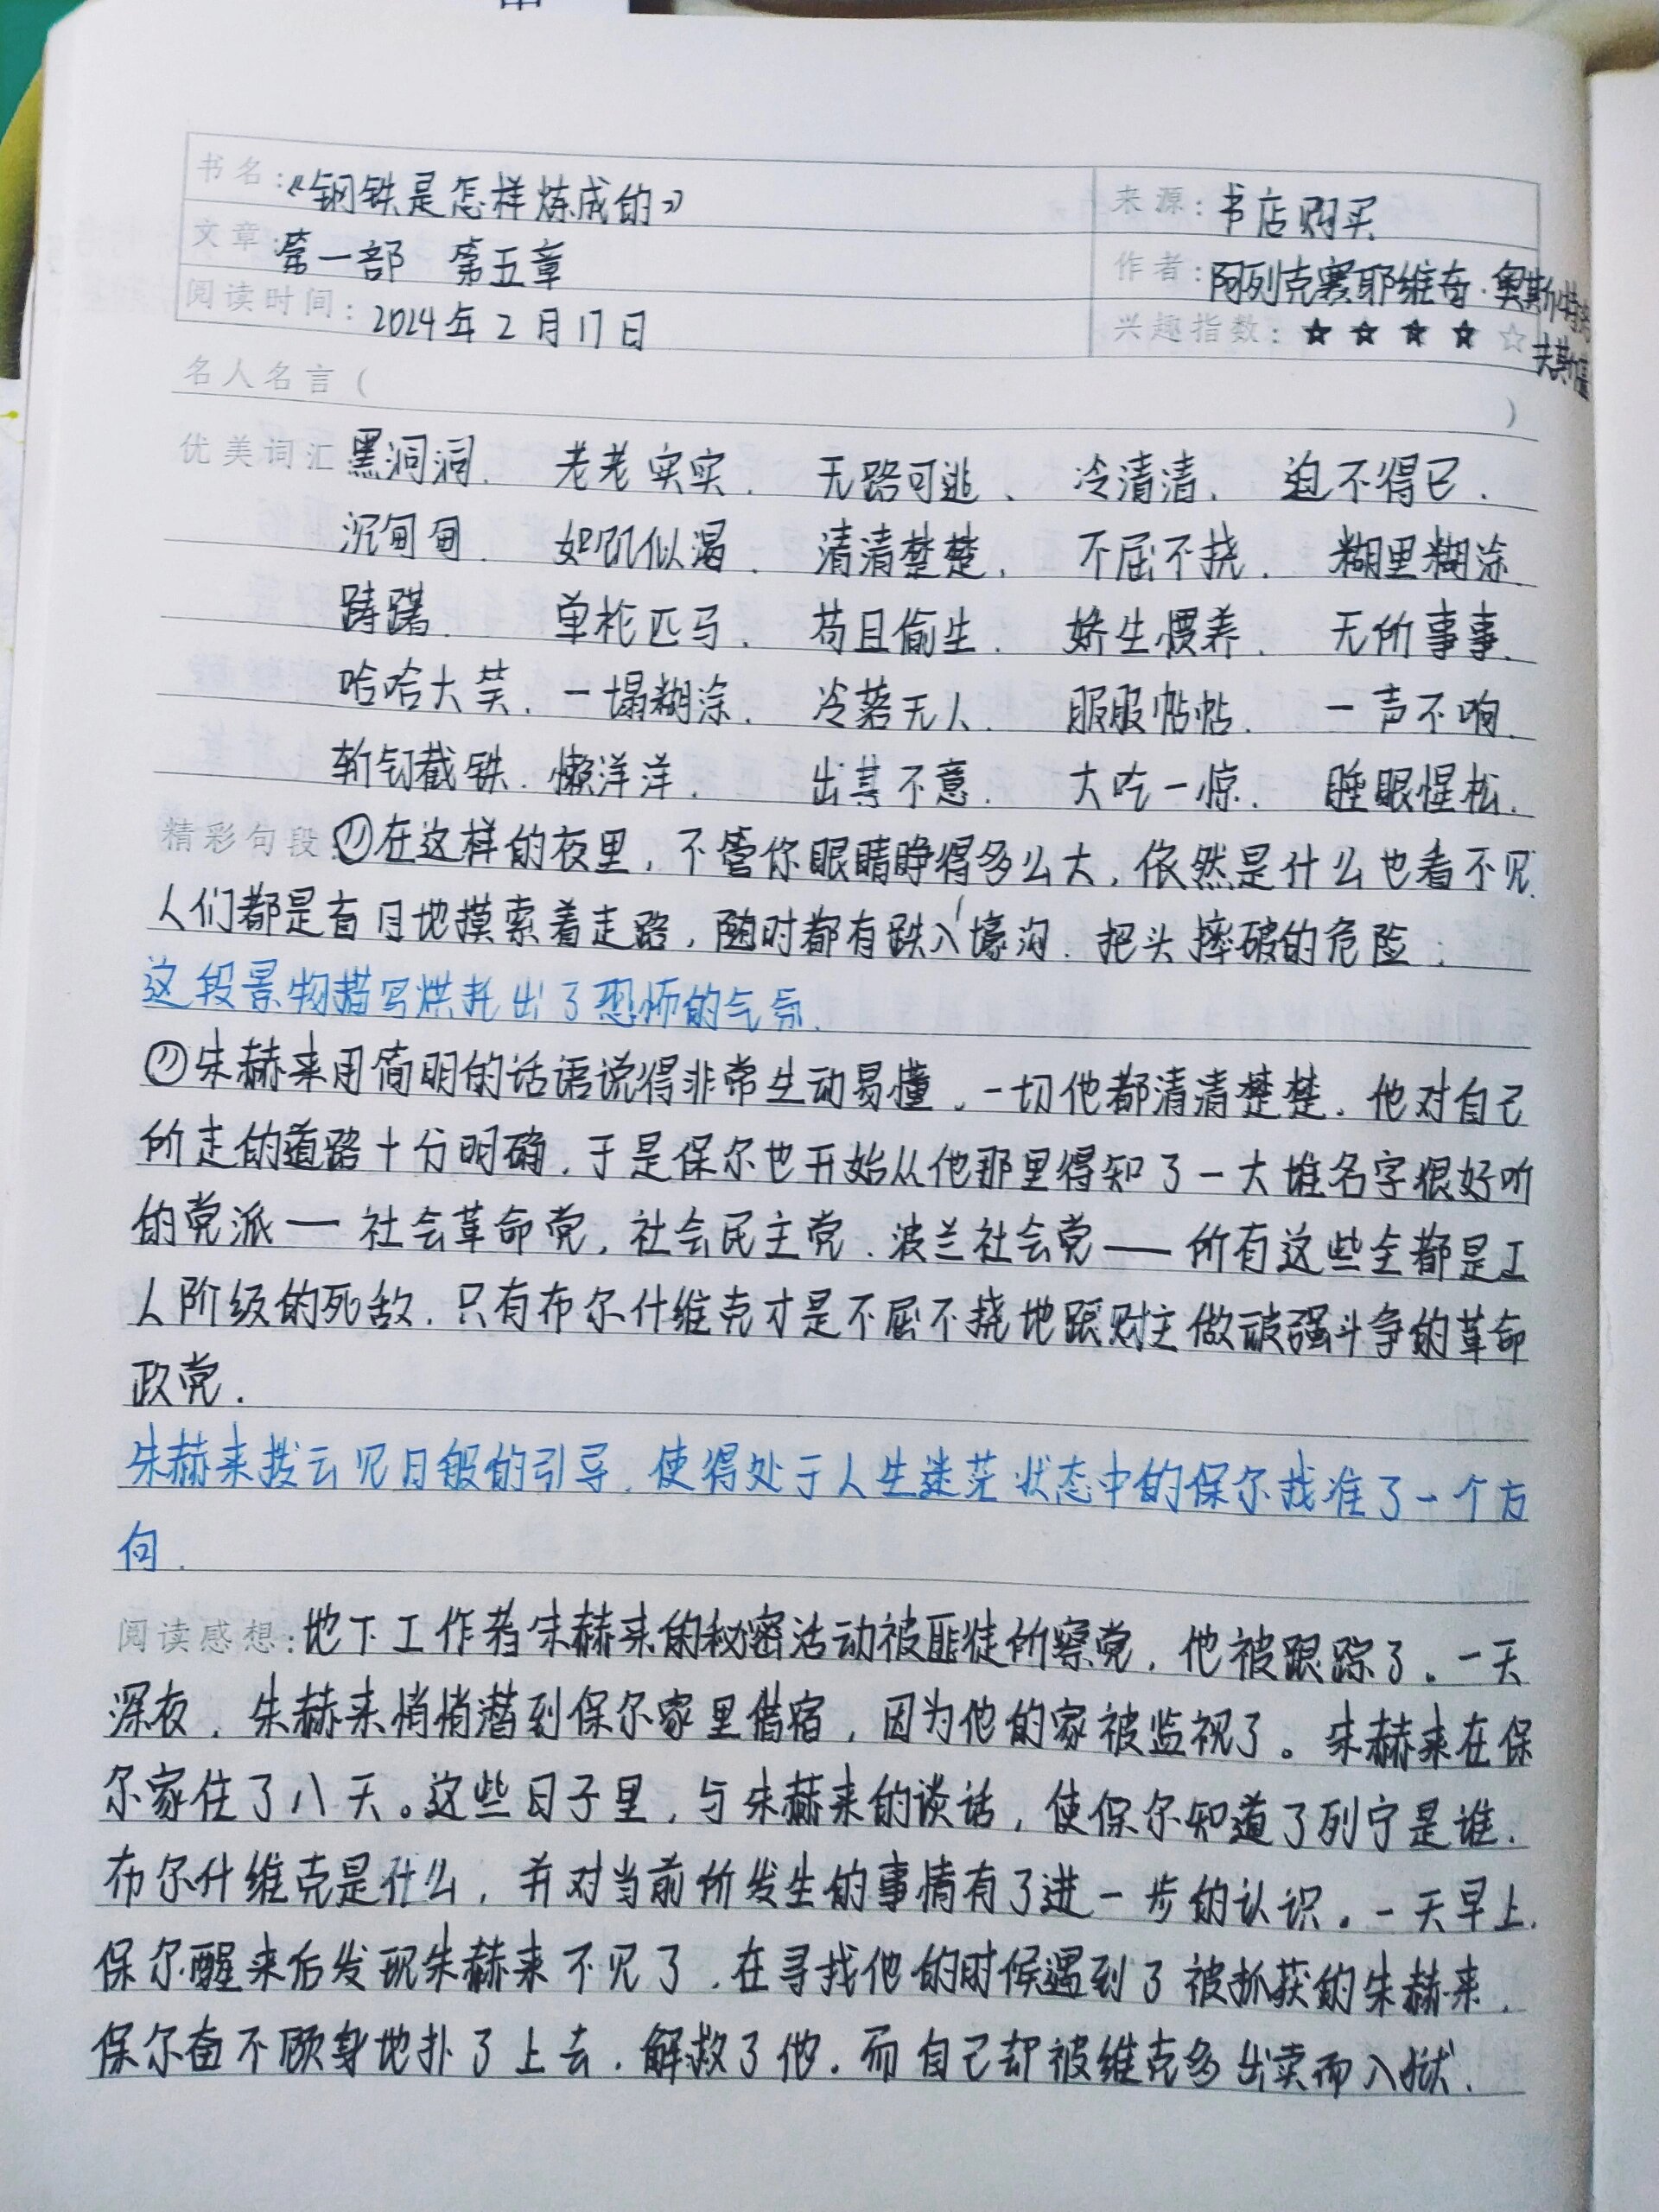 书名：《钢铁是怎样炼成的》 来源：书店购买
文章：第一部 第五章 作者：阿列克赛耶维奇·奥斯特洛夫斯基
阅读时间：2024年2月17日 兴趣指数：★ ★ ★ ★ ☆
名人名言（ ）
优美词汇 黑洞洞、 老老实实、 无路可逃、 冷清清、 迫不得已、
沉甸甸、 如饥似渴、 清清楚楚、 不屈不挠、 糊里糊涂、
踌躇、 单枪匹马、 苟且偷生、 娇生惯养、 无所事事、
哈哈大笑、 一塌糊涂、 冷落无人、 服服帖帖、 一声不响、
斩钉截铁、 懒洋洋、 出其不意、 大吃一惊、 睡眼惺松、
精彩句段：(1)在这样的夜里，不管你眼睛睁得多么大，依然是什么也看不见，
人们都是盲目地摸索着走路，随时都有跌入壕沟、把头摔破的危险；
这段景物描写烘托出了恐怖的气氛、
(2)朱赫来用简明的话语说得非常生动易懂，一切他都清清楚楚，他对自己
所走的道路十分明确，于是保尔也开始从他那里得知了一大堆名字很好听
的党派——社会革命党，社会民主党、波兰社会党——所有这些全都是工
人阶级的死敌，只有布尔什维克才是不屈不挠地跟财主做顽强斗争的革命
政党．
朱赫来拨云见日般的引导，使得处于人生迷茫状态中的保尔找准了一个方
向．
阅读感想：地下工作者朱赫来的秘密活动被匪徒所察觉，他被跟踪了。一天
深夜，朱赫来悄悄潜到保尔家里借宿，因为他的家被监视了。朱赫来在保
尔家住了八天。这些日子里，与朱赫来的谈话，使保尔知道了列宁是谁．
布尔什维克是什么，并对当前所发生的事情有了进一步的认识。一天早上，
保尔醒来后发现朱赫来不见了，在寻找他的时候遇到了被抓获的朱赫来，
保尔奋不顾身地扑了上去，解救了他，而自己却被维克多出卖而入狱．